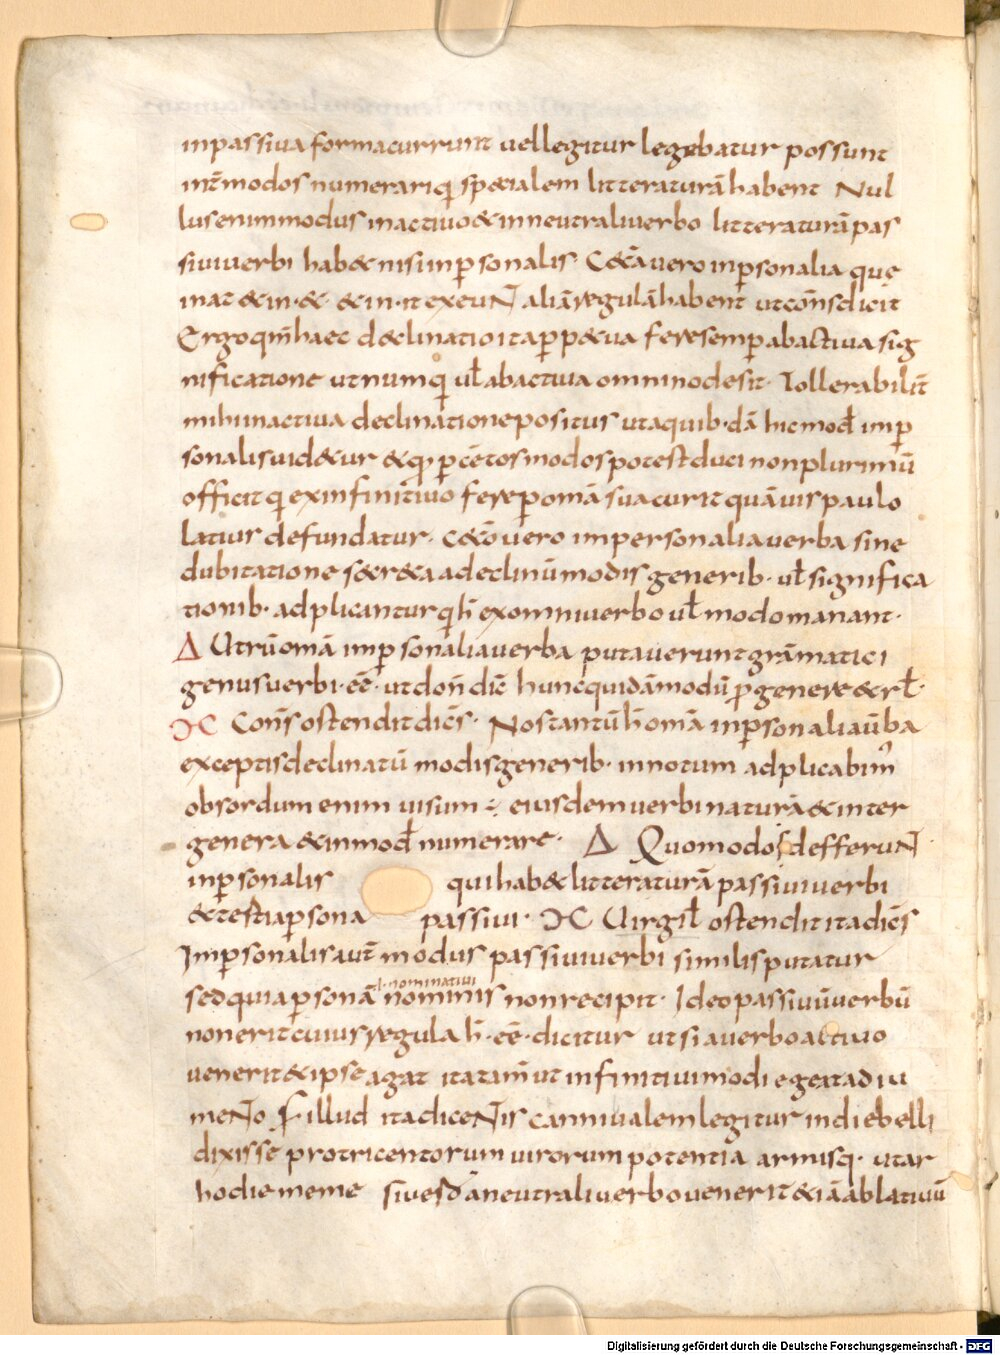 inpassiua formacurrunt uellegitur legebatur possunt
int̄modos numerariq; specialem litteraturā habent Nul
lusenimmodus inactiuo & inneutraliuerbo litteraturā pas
siuiuerbi hab& nisi inꝑsonalis C&ea uero inꝑsonalia que
inat & in · & · & in · it exeunt aliā regulā habent utcōnsdicit
Ergo qm̄ haec declinatio ita ꝑp&ua feresemꝑ abactiua sig
nificatione utnumq; ul̄ abactiua omninodesit · Tollerabilit̄
mihi inactiua declinatione positus utaquib · dā hicmod̄ imꝑ
sonalis uid&ur &q; ꝑc&eros modos potest duci nonplurimū
officit q; exinfinitiuo fere ꝑ omā sua curit quāuis paulo
latius defundatur · C&ēo uero impersonalia uerba sine
dubitatione s&r&a adeclinū modis generib · ul̄ significa
tionib · adplicantur q; h̄ exomniuerbo ul̄ modo manant ·
Δ Utrū omā imꝑsonalia uerba putauerunt grāmatici
genus uerbi · eē · ut don̄ dic̄ huncquidāmodū ꝓ genere & rl̄ ·
ƆC Cons̄ ostendit dicēs · Nos tantū h̄ omā inꝑsonalia uba
exceptis declinatū modis generib · innotum adplicabim᾽
obsordum enim uisum ÷ eiusdem uerbi naturā & inter
genera & inmod̄ numerare · Δ Quomodo defferunt
inꝑsonalis qui hab& litteraturā passiui uerbi
& testia ꝑsona passiui · ƆC Uirgil̄ ostendit ita dicēs
Imꝑsonalis aut̄ modus passiui uerbi similis putatur
l · nominatiui
sed quia ꝑsonā nominis non recipit · Ideo passiuū uerbū
non erit cuius regula h̄ · eē · dicitur ut si a uerbo actiuo
uenerit & ipse agat ita tam̄ ut infinitiui modi egeat adiu
mento S̄ illud ita dicentis cannualem legitur in die belli
dixisse pro tricentorum uirorum potentia armisq · utar
hodie meme siue s̄ dā neutrali uerbo uenerit & iā ablatiuū
Digitalisierung gefördert durch die Deutsche Forschungsgemeinschaft - DFG